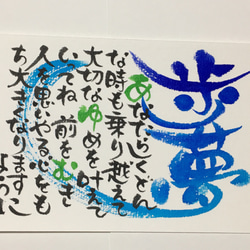 歩夢
あなたらしくどん
な時も乗り越えて
大切なゆめを叶えて
いってね 前をむき
人を思いやる心をも
ち大きくなります
ように